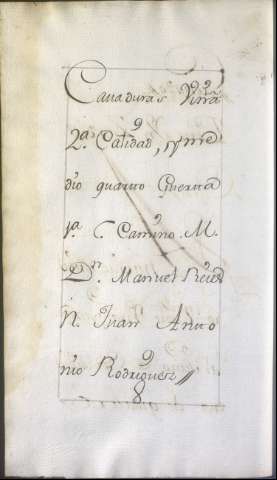 Cavaduras Viña
2ª Calidad, y me
dio quarto Guerta
1ª C. Camino M.
Dn. Manuel
N. Juan Anto
nio Rodriguez //
8.